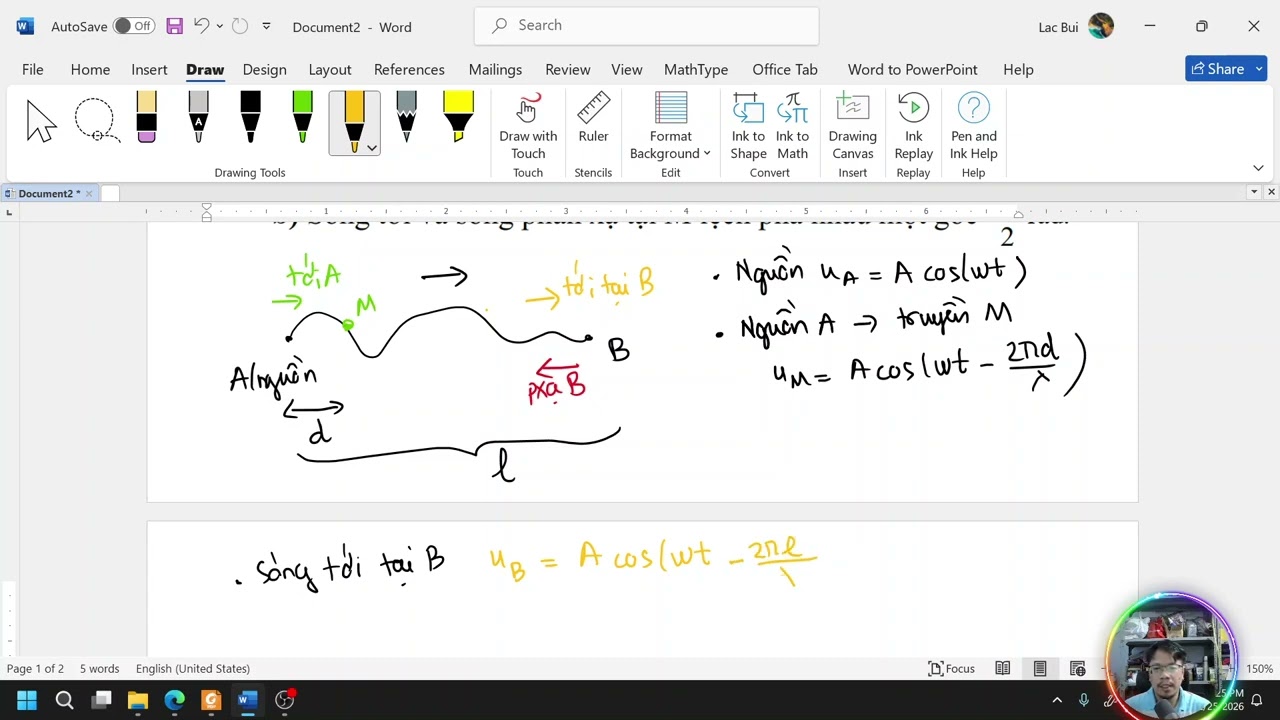 AutoSave Off Document2 - Word Search Lac Bui
File Home Insert Draw Design Layout References Mailings Review View MathType Office Tab Word to PowerPoint Help Share
Draw with Touch Ruler Format Background Ink to Shape Ink to Math Drawing Canvas Ink Replay Pen and Ink Help
Drawing Tools Touch Stencils Edit Convert Insert Replay Help
Document2 *
1 2 3 4 5 6
2
tới A
M
tới tại B
A/nguồn
B
pxạ B
d
l
. Nguồn u_A = A cos(ωt)
. Nguồn A → truyền M
u_M = A cos(ωt - 2πd/λ)
. Sóng tới tại B u_B = A cos(ωt - 2πl/λ
Page 1 of 2 5 words English (United States) Focus 150%